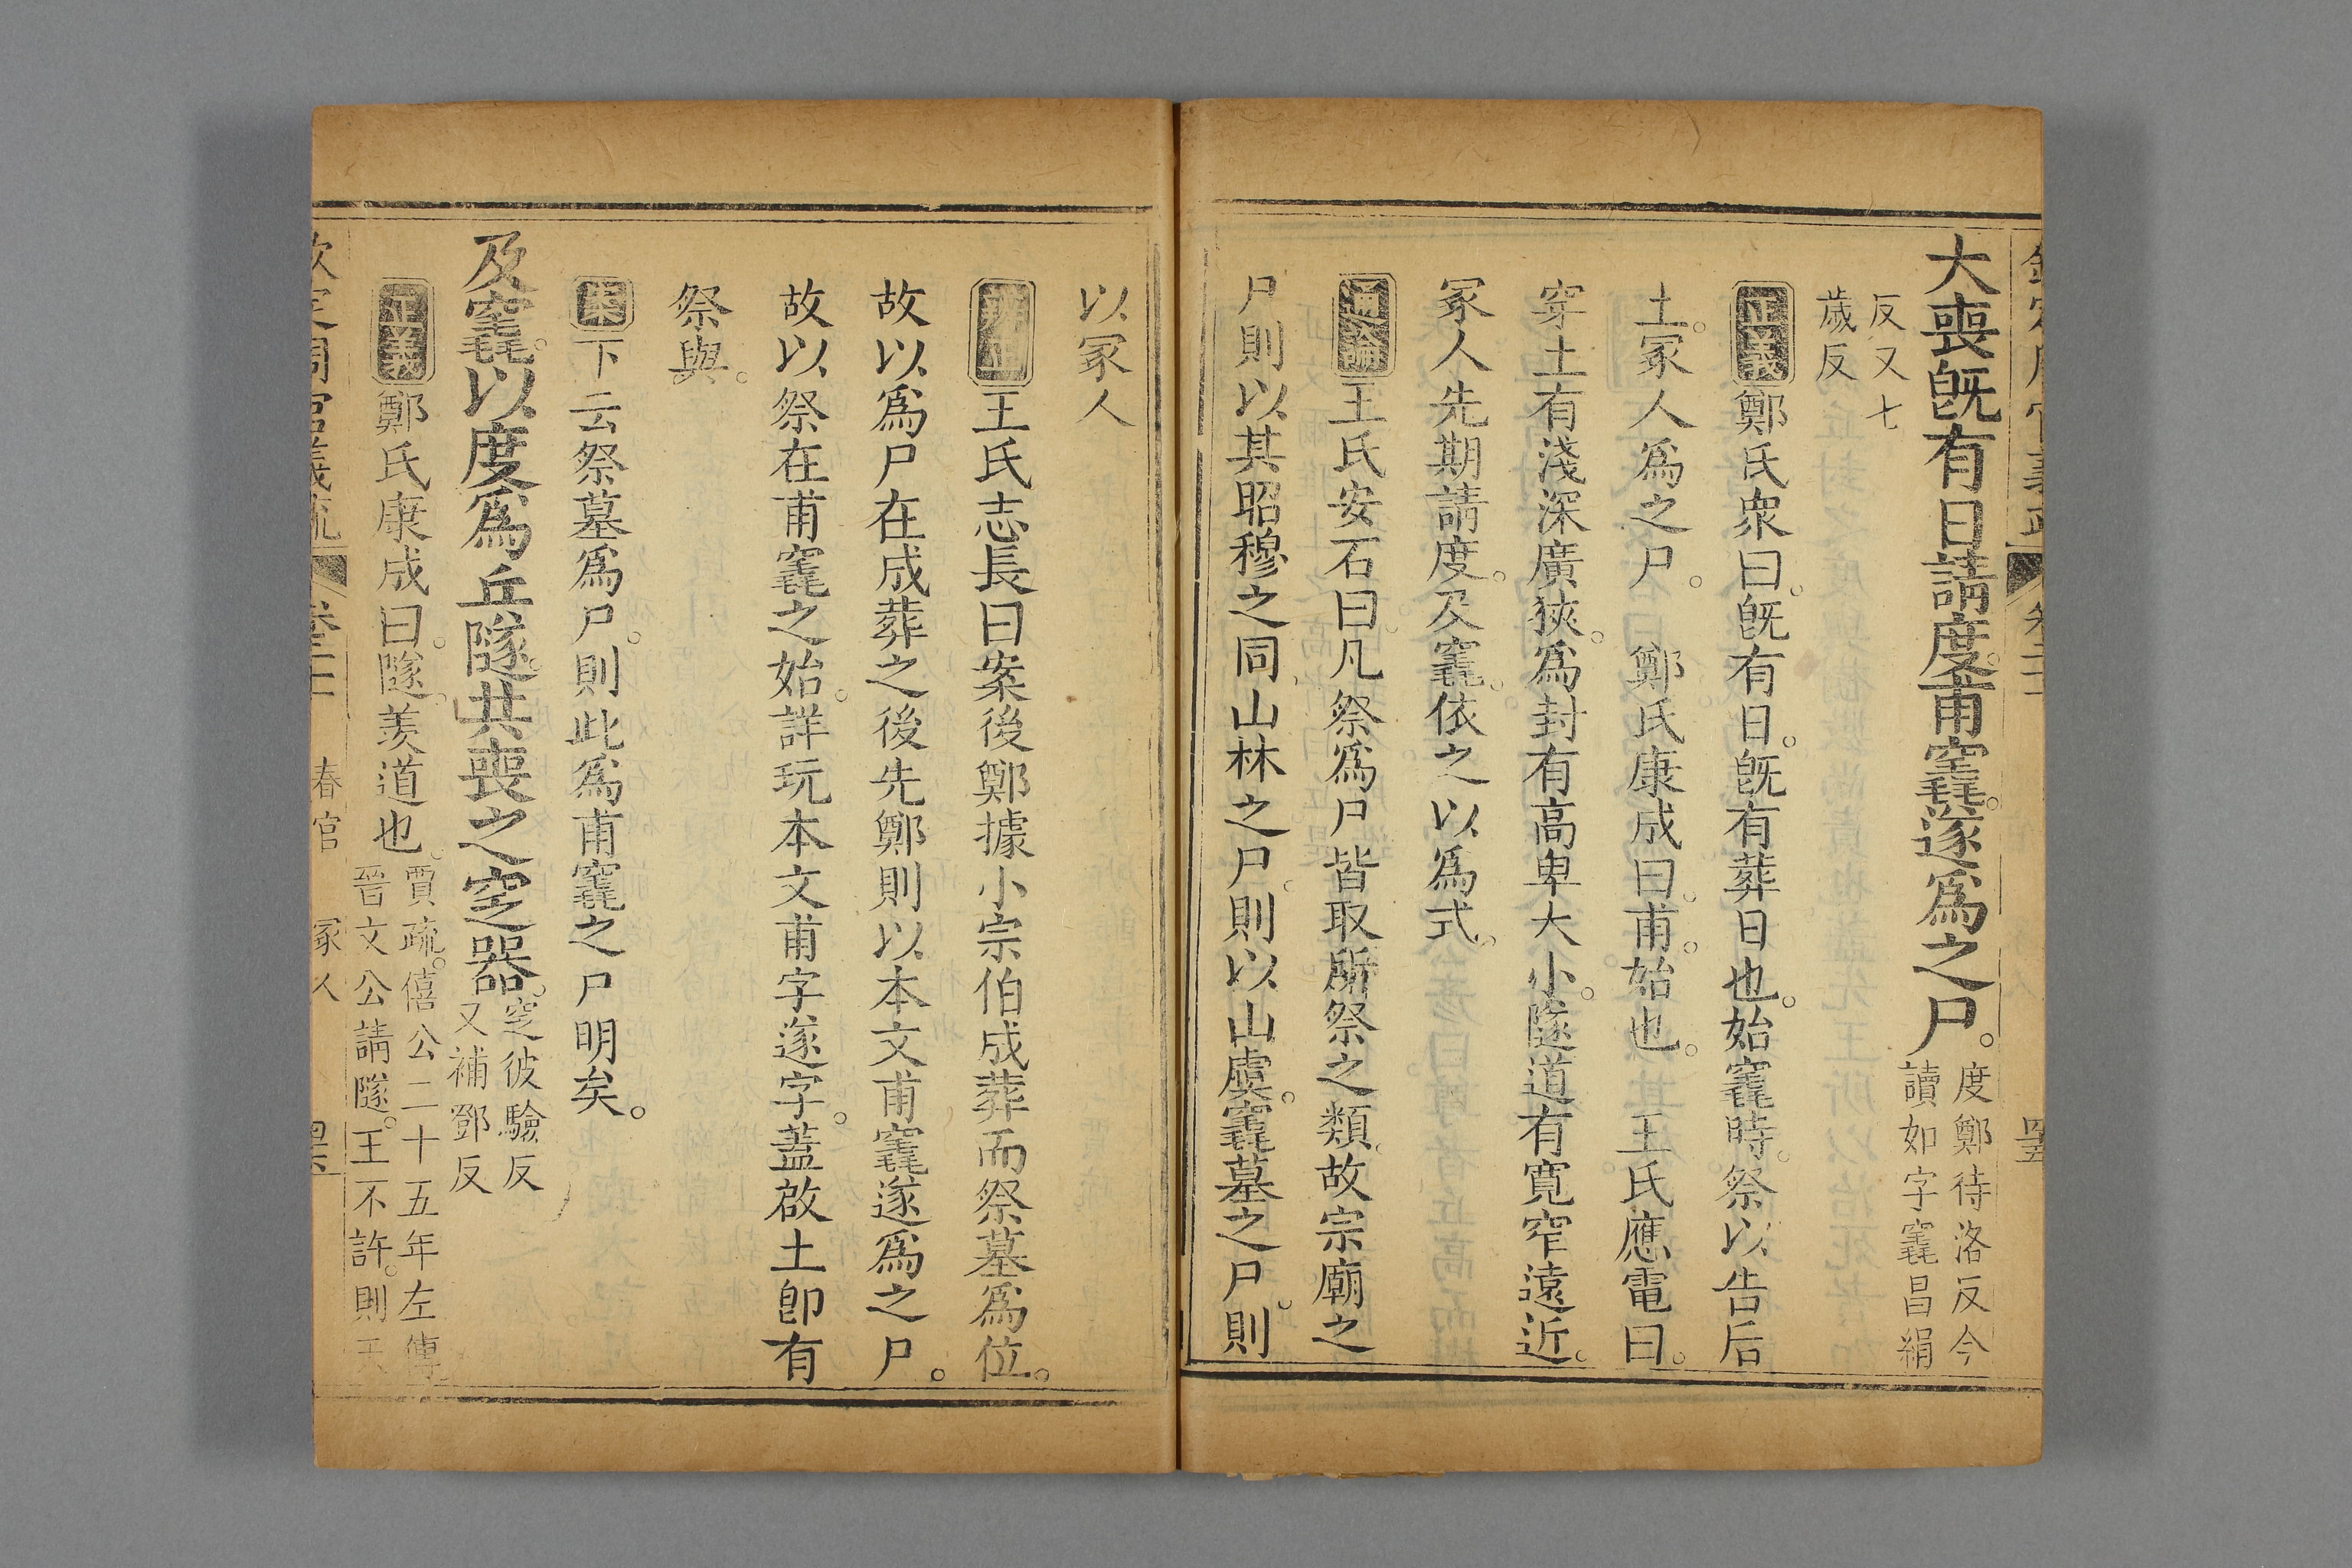 大喪旣有日請度甫竁遂爲之尸。度鄭待洛反今
讀如字竁昌絹
反又七
歲反
正義鄭氏衆曰。旣有日。旣有葬日也。始竁時。祭以告后
土。冢人爲之尸。　鄭氏康成曰。甫。始也。　王氏應電曰。
穿土有淺深廣狹。爲封有高卑大小。隧道有寬窄遠近。
冢人先期請度。及竁。依之以爲式。
通論王氏安石曰。凡祭爲尸皆取所祭之類。故宗廟之
尸則以其昭穆之同。山林之尸。則以山虞。竁墓之尸。則
以冢人
辨正王氏志長曰案後鄭據小宗伯成葬而祭墓爲位。
故以爲尸在成葬之後先鄭則以本文甫竁遂爲之尸。
故以祭在甫竁之始。詳玩本文甫字遂字。蓋啟土卽有
祭與。
案下云祭墓爲尸。則此爲甫竁之尸明矣。
及竁。以度爲丘隧。共喪之窆器。窆彼驗反
又補鄧反
正義鄭氏康成曰。隧。羨道也。賈疏。僖公二十五年左傳
晉文公請隧。王不許。則天
欽定周官義疏　卷二十二　春官　冢人